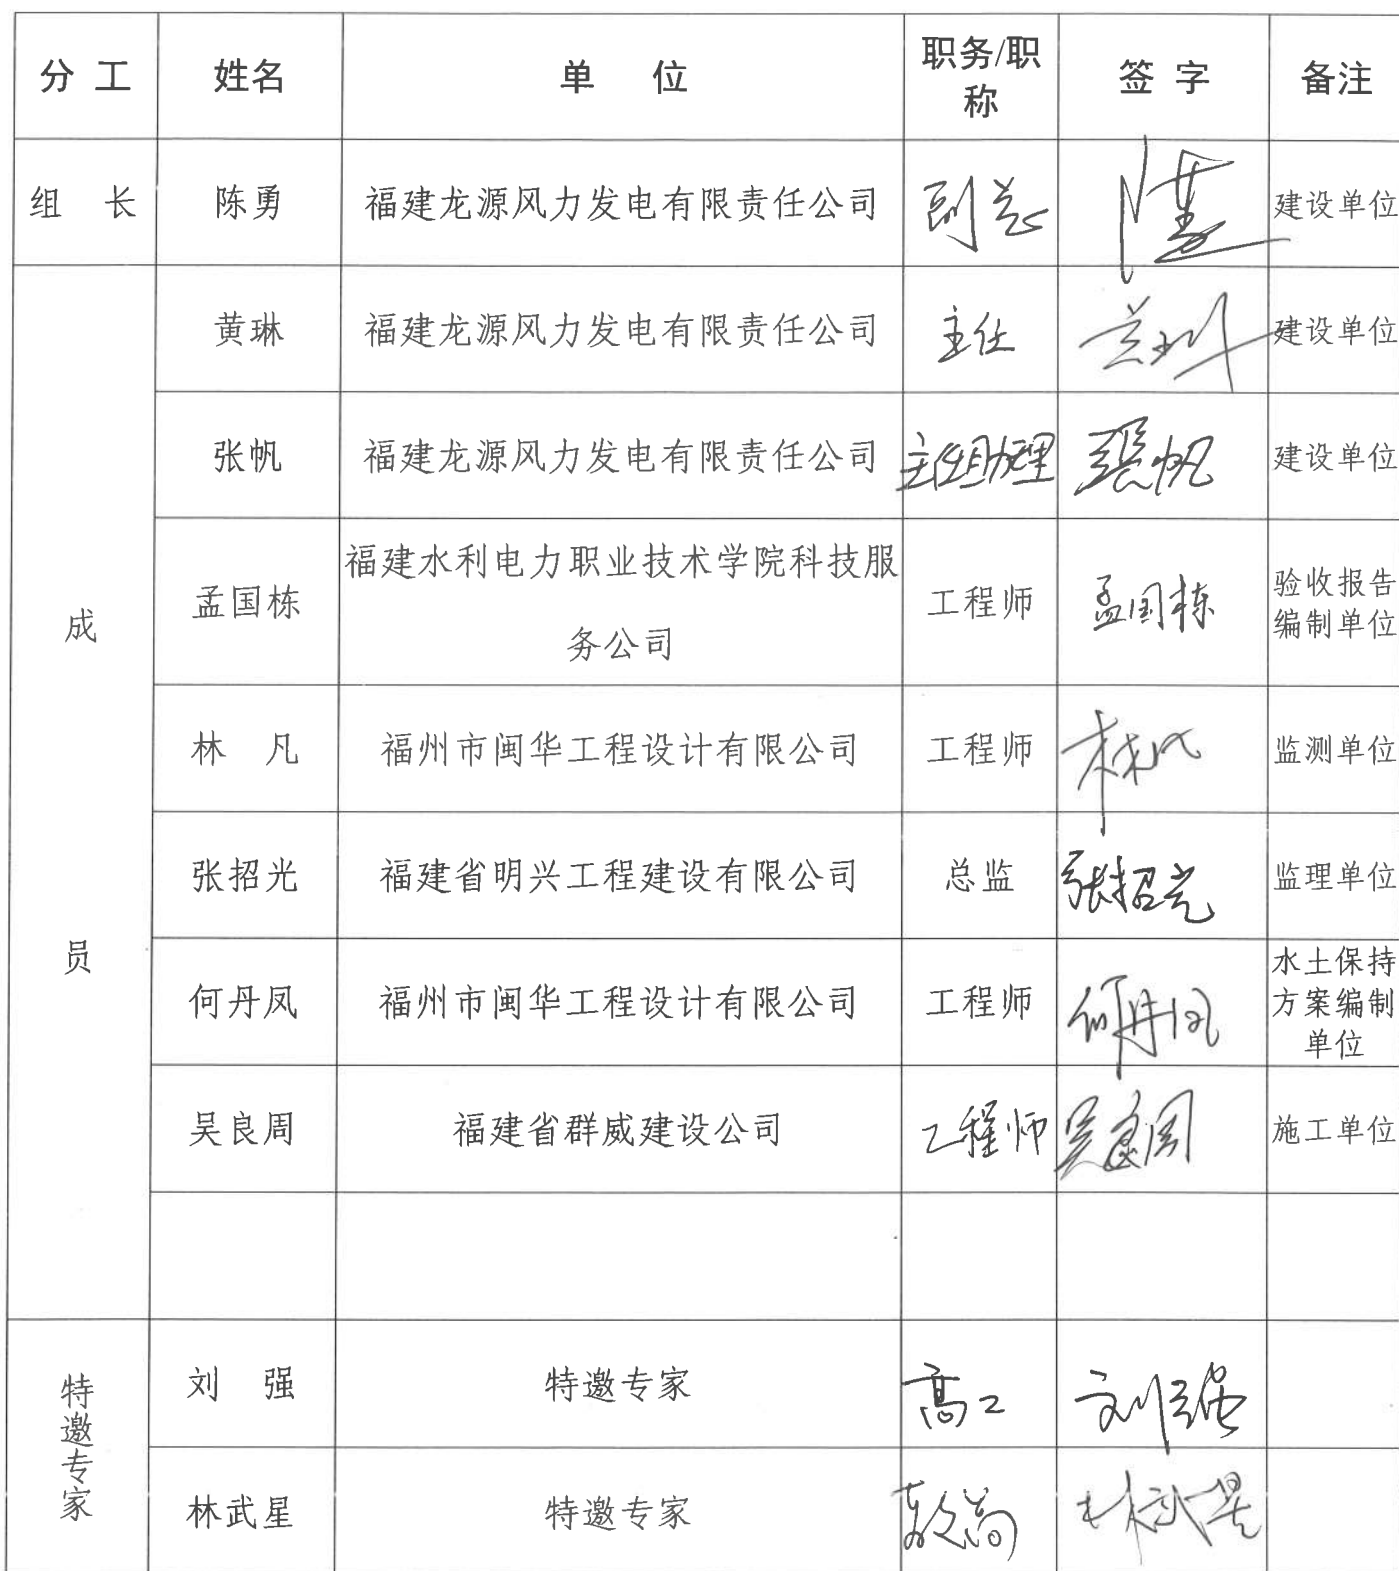 分 工 姓名 单 位 职务/职
称 签 字 备注
组 长 陈勇 福建龙源风力发电有限责任公司 副总 建设单位
成
员
黄琳 福建龙源风力发电有限责任公司 主任 黄琳 建设单位
张帆 福建龙源风力发电有限责任公司 主任助理 张帆 建设单位
孟国栋 福建水利电力职业技术学院科技服
务公司 工程师 孟国栋 验收报告
编制单位
林 凡 福州市闽华工程设计有限公司 工程师 林凡 监测单位
张招光 福建省明兴工程建设有限公司 总监 张招光 监理单位
何丹凤 福州市闽华工程设计有限公司 工程师 何丹凤 水土保持
方案编制
单位
吴良周 福建省群威建设公司 工程师 吴良周 施工单位
特邀专家
刘 强 特邀专家 高工 刘强
林武星 特邀专家 教高 林武星